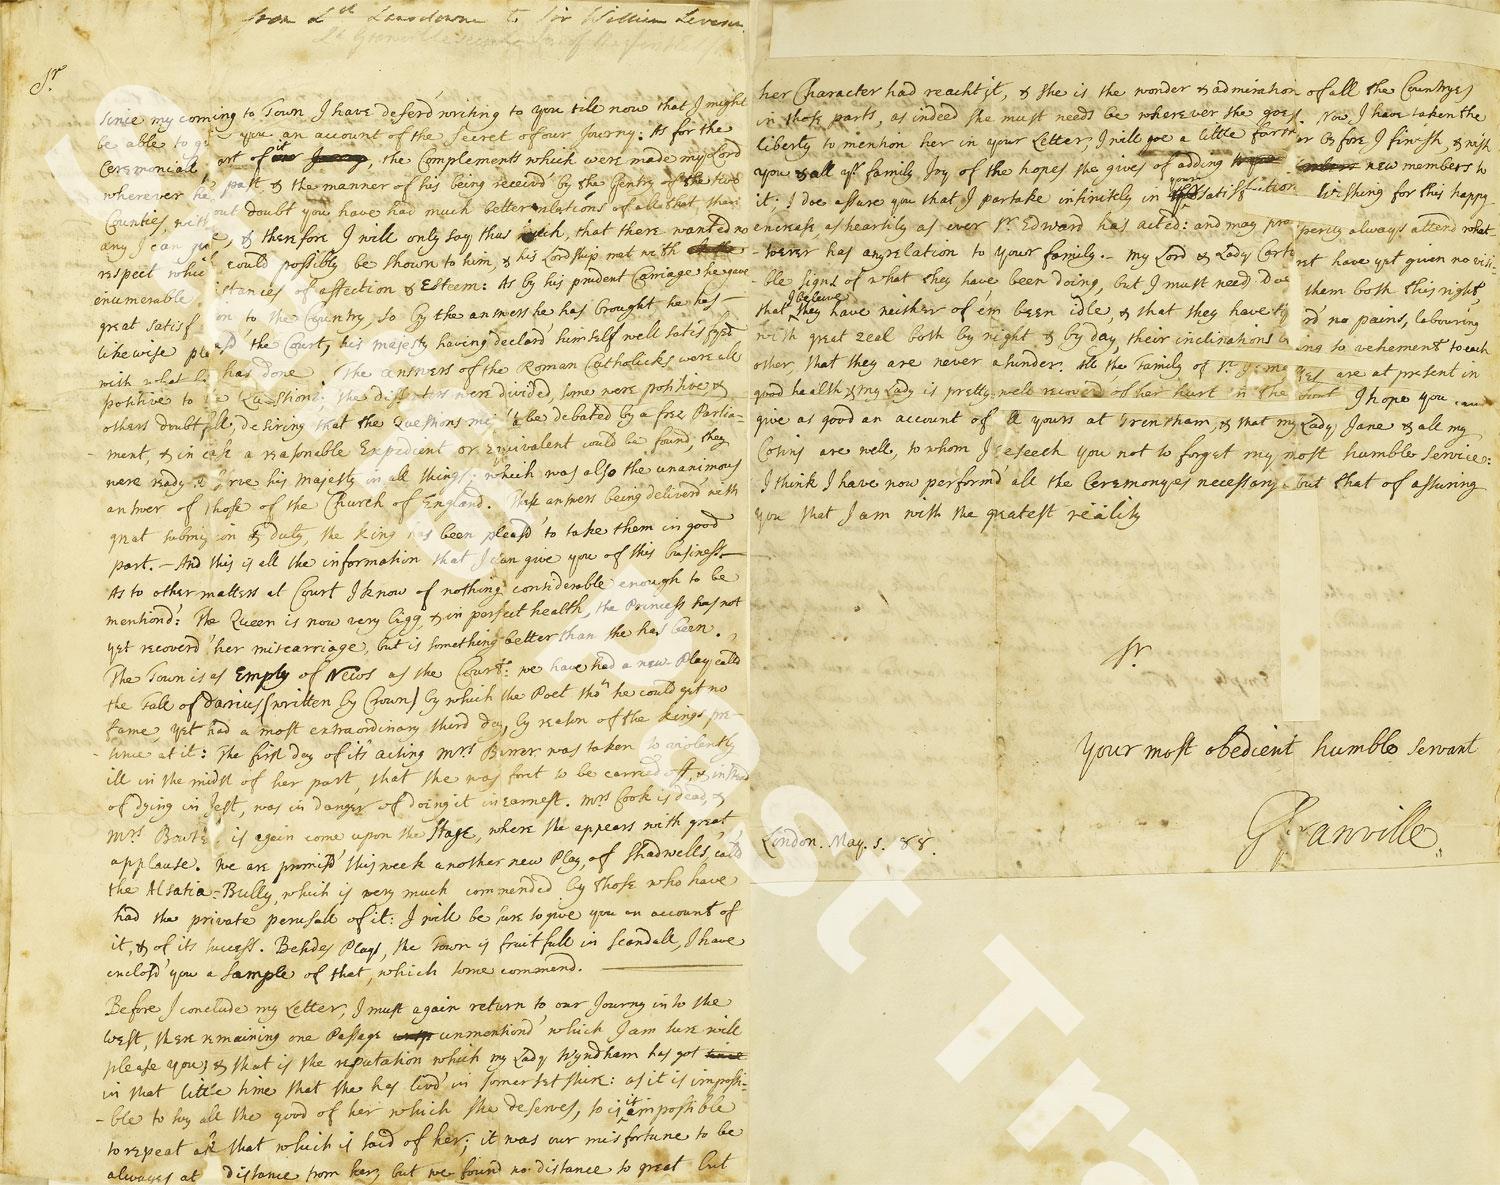 from Ld Lansdowne to Sir William Leveson
Sr
Since my coming to Town I have deferd writing to you till now that I might
be able to you an account of the Secret of our Journy: As for the
Ceremoniall part of it, the Complements which were made my Lord
wherever he past & the manner of his being receiv'd by the Gentry of the two
Counties, without doubt you have had much better relations of all that than
any I can give, & therefore I will only say thus much, that there wanted no
respect which could possibly be shown to him, & his Lordship met with
innumerable instances of affection & Esteem: As by his prudent Carriage he gave
great satisfaction to the Country, so by the answers he has brought he has
likewise pleas'd the Court, his majesty having declar'd himself well satisfyed
with what he has done. The answers of the Roman Catholicks were all
positive to the Questions: the dissenters were divided, some were positive, &
others doubtfull, desiring that the Questions might be debated by a free Parlia-
ment, & in case a reasonable Expedient or Equivalent could be found, they
were ready to serve his Majesty in all things; which was also the unanimous
answer of those of the Church of England. These answers being deliverd with
great submission & duty, the King has been pleas'd to take them in good
part. - And this is all the information that I can give you of this business.
As to other matters at Court I know of nothing considerable enough to be
mention'd: The Queen is now very bigg, & in perfect health, the Princess has not
yet recoverd her miscarriage, but is something better than she has been.
The Town is as Empty of News as the Court: we have had a new Play calld
the Fall of Darius [written by Crown] by which the Poet tho' he could get no
fame, yet had a most extraordinary third day, by reason of the Kings pre-
sence at it: The first day of its acting Mrs Barrer was taken so violently
ill in the midst of her part, that she was forc't to be carried off, & instead
of dying in Jest, was in danger of doing it in earnest. Mrs Cook is dead, &
Mrs is again come upon the Stage, where she appears with great
applause. We are promis'd this week another new Play, of Shadwells, call'd
the Alsatia-Bully, which is very much commended by those who have
had the private perusall of it: I will be sure to give you an account of
it, & of its success. Besides Plays, the Town is fruitfull in Scandall, I have
inclos'd you a Sample of that, which some commend.
Before I conclude my Letter, I must again return to our Journy into the
West, there remaining one Passage unmention'd which I am sure will
please you; & that is the reputation which my Lady Wyndham has got
in that little time that she has liv'd in Somersetshire: as it is impossi-
-ble to say all the good of her which she deserves, so is it impossible
to repeat all that which is said of her; it was our misfortune to be
always at distance from her, but we found no distance so great but
her Character had reacht it, & she is the wonder & admiration of all the Countryes
in those parts, as indeed she must needs be wherever she goes. Now I have taken the
liberty to mention her in your Letter, I will goe a little farther before I finish, & wish
you & all yr family Joy of the hopes she gives of adding new members to
it: I doe assure you that I partake infinitely in your satisfaction, wishing for this happy
encrease as heartily as ever Sr Edward has acted: and may prosperity always attend what-
-soever has any relation to your family. - My Lord & Lady Carteret have yet given no visi-
-ble signs of what they have been doing, but I must need doe them both this right,
that I believe they have neither of 'em been idle, & that they have spar'd no pains, labouring
with great zeal both by night & by day, their inclinations being so vehement to each
other, that they are never asunder. All the family of St James's are at present in
good health & my Lady is pretty well recover'd of her hurt in the I hope you can
give as good an account of all yours at Trentham, & that my Lady Jane & all my
Cosins are well, to whom I beseech you not to forget my most humble service:
I think I have now perform'd all the Ceremonyes necessary but that of assuring
you that I am with the greatest reality
Sr
Your most obedient humble Servant
Gr: Granville
London. May. 5. 88.
Cornwall Heritage Trust Tra